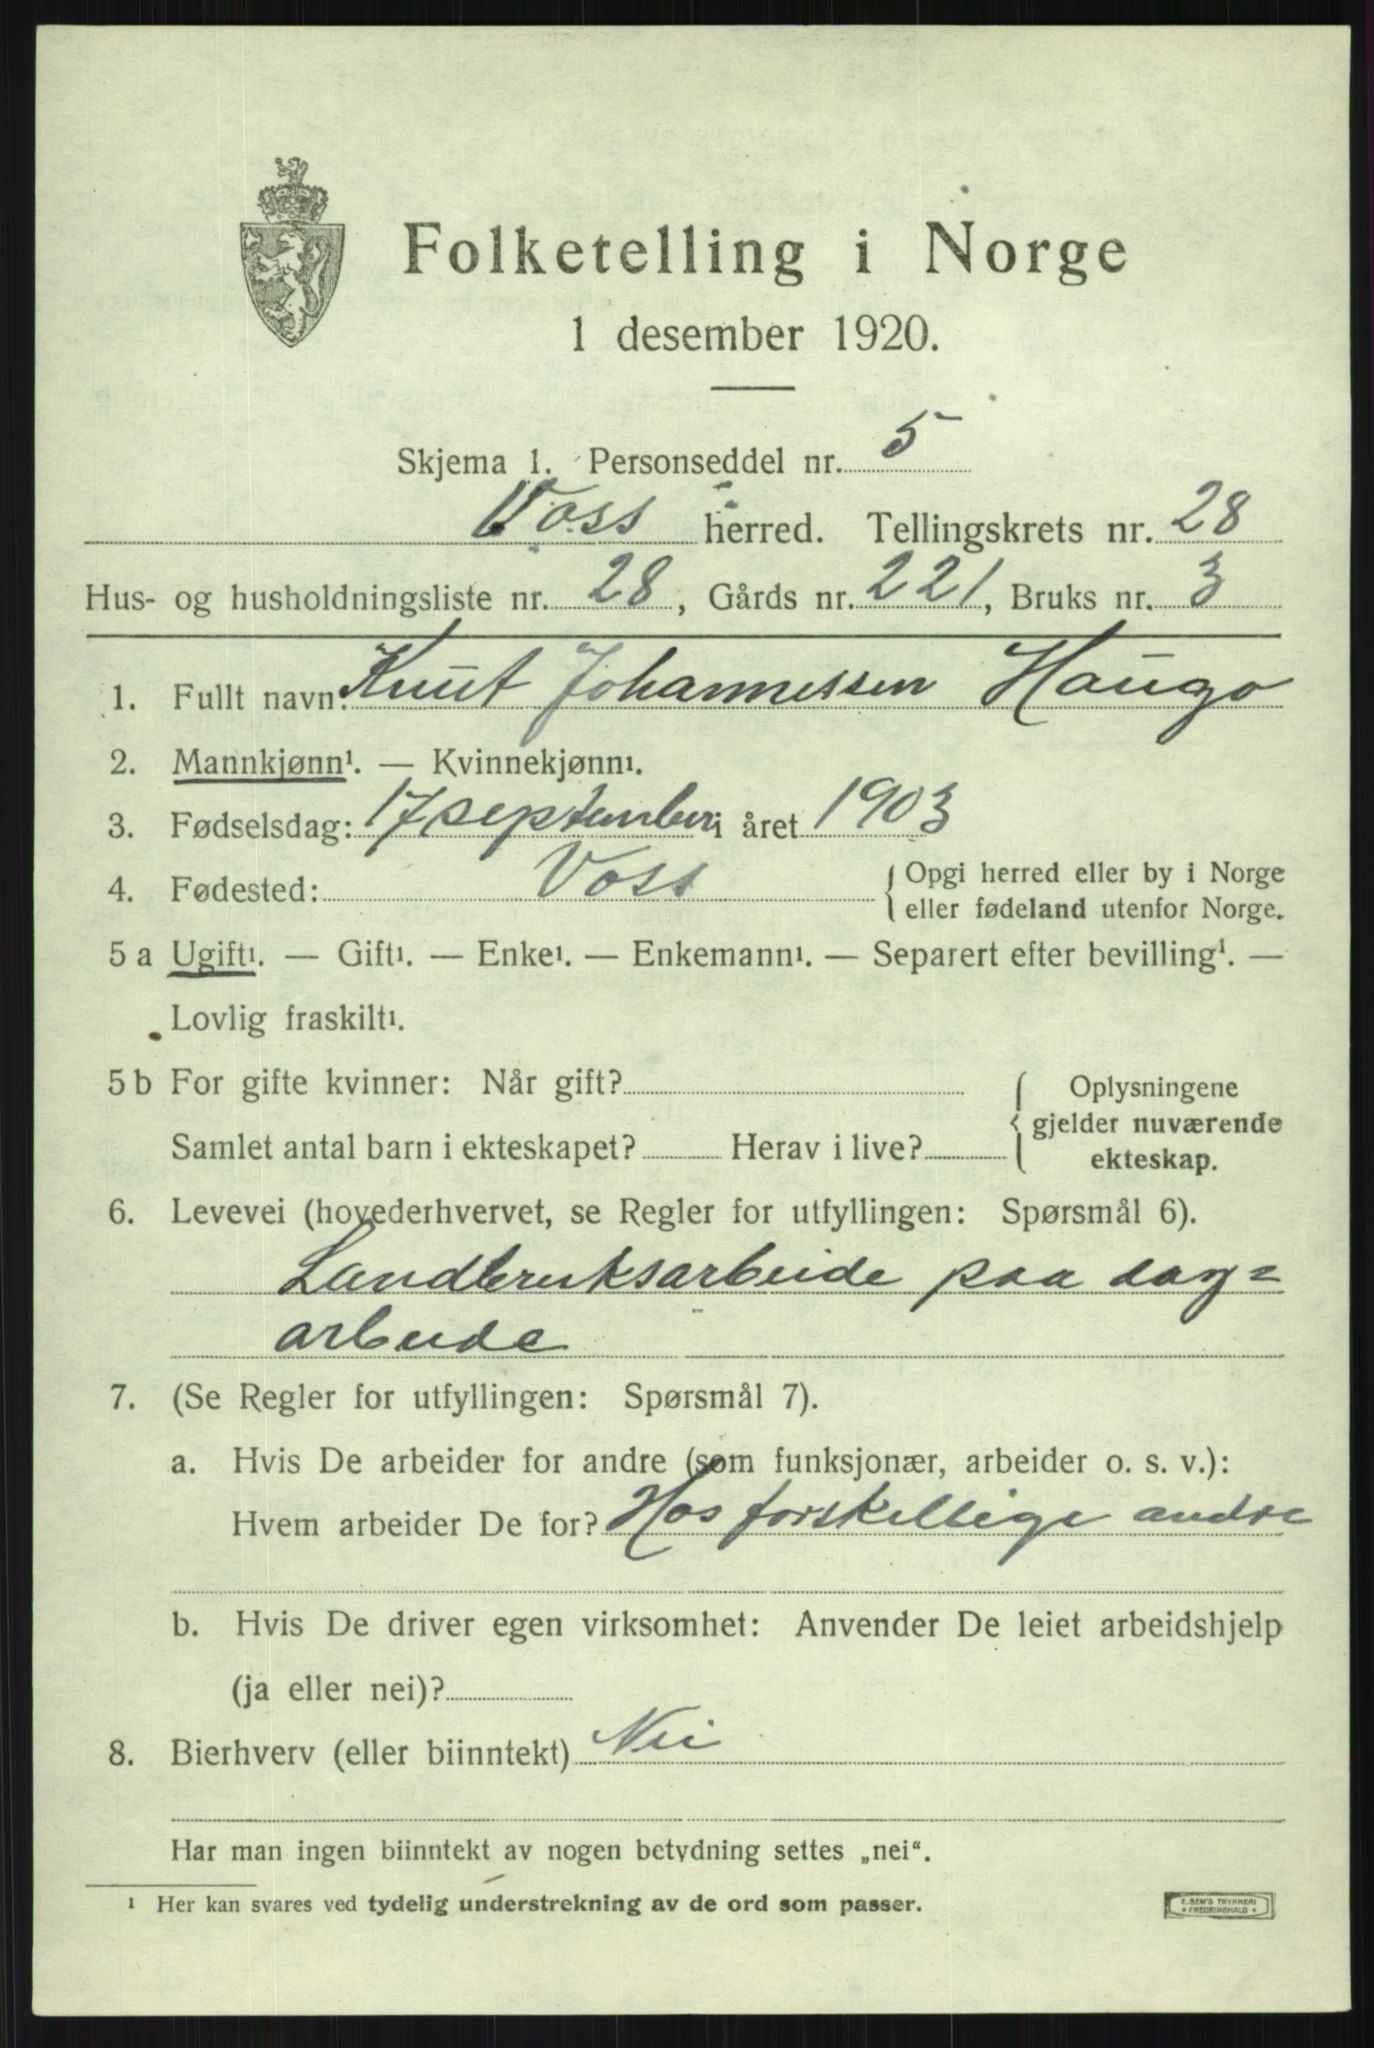 Folketelling i Norge
1 desember 1920.
Skjema 1. Personseddel nr. 5
Voss herred. Tellingskrets nr. 28
Hus- og husholdningsliste nr. 28, Gårds nr. 221, Bruks nr. 3
1. Fullt navn: Knut Johannessen Haugo
2. Mannkjønn¹. — Kvinnekjønn¹.
3. Fødselsdag: 17 september i året 1903
4. Fødested: Voss {Opgi herred eller by i Norge
eller fødeland utenfor Norge.
5 a Ugift¹. — Gift¹. — Enke¹. — Enkemann¹. — Separert efter bevilling¹. —
Lovlig fraskilt¹.
5 b For gifte kvinner: Når gift? {Oplysningene
gjelder nuværende
Samlet antal barn i ekteskapet? Herav i live?
ekteskap.
6. Levevei (hovederhvervet, se Regler for utfyllingen: Spørsmål 6).
Landbruksarbeide paa dag=
arbeide
7. (Se Regler for utfyllingen: Spørsmål 7).
a. Hvis De arbeider for andre (som funksjonær, arbeider o. s. v.):
Hvem arbeider De for? Hos forskellige andre
b. Hvis De driver egen virksomhet: Anvender De leiet arbeidshjelp
(ja eller nei)?
8. Bierhverv (eller biinntekt) Nei
Har man ingen biinntekt av nogen betydning settes „nei“.
¹ Her kan svares ved tydelig understrekning av de ord som passer.
E. SEM'S TRYKKERI
* FREDRIKSHALD *